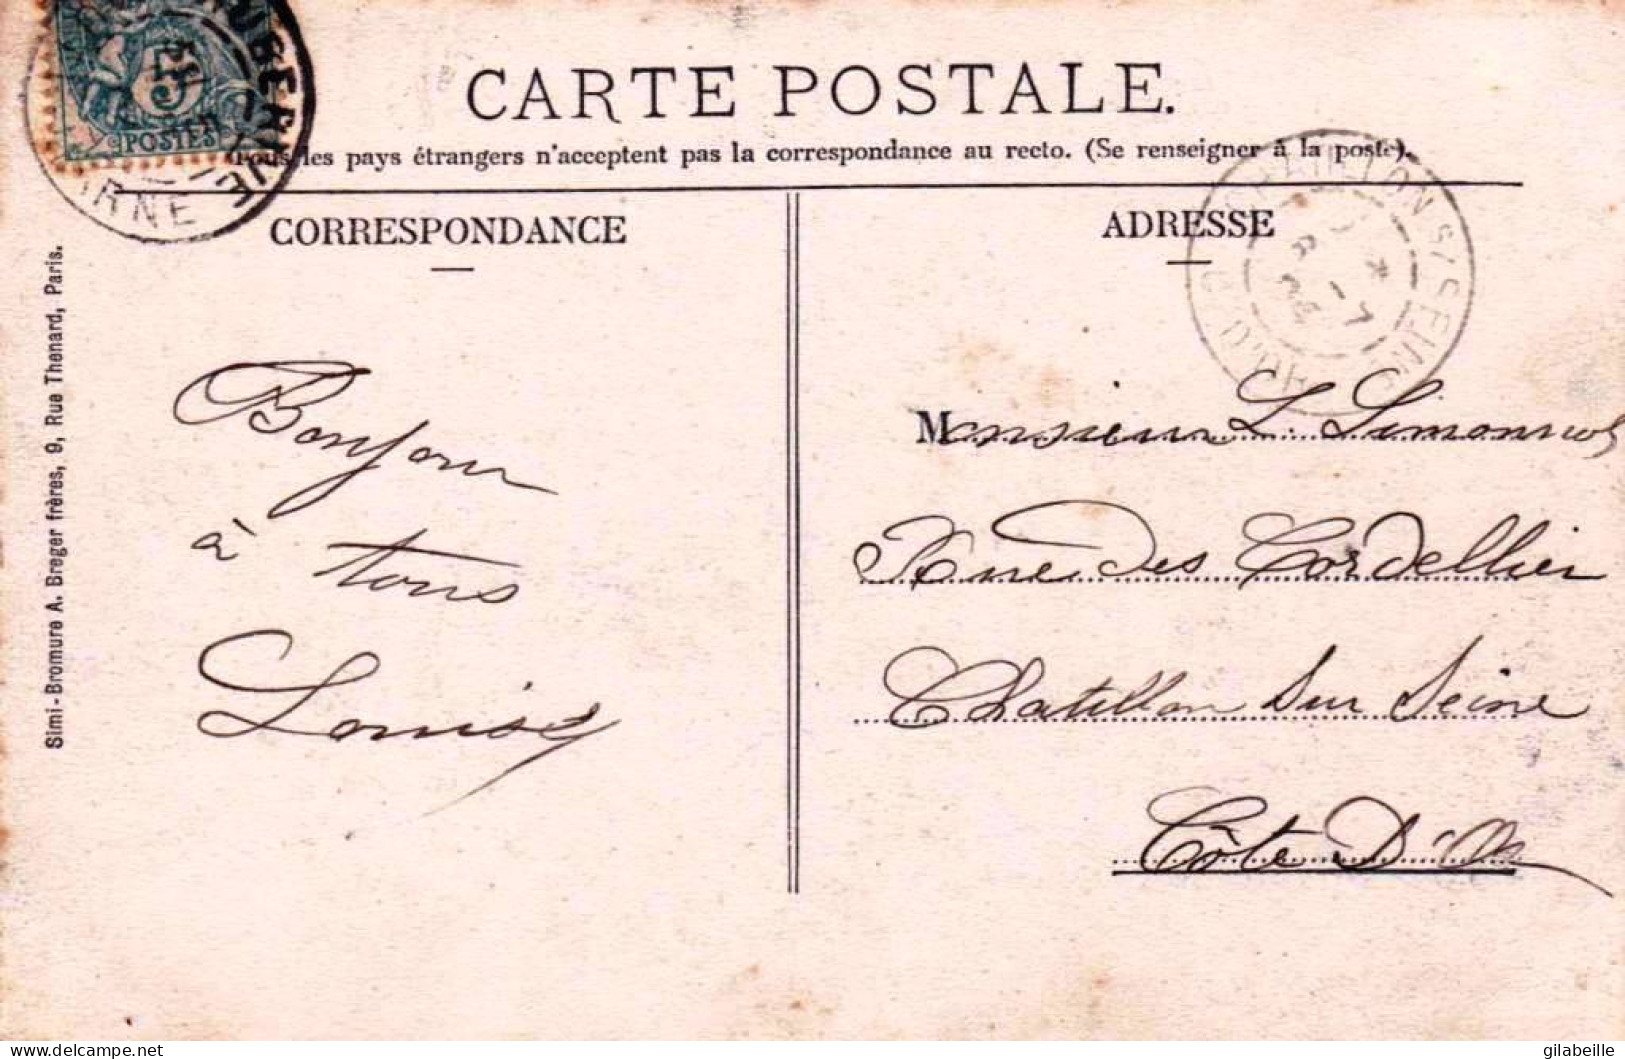 CARTE POSTALE.
Tous les pays étrangers n'acceptent pas la correspondance au recto. (Se renseigner à la poste).
5
POSTES
CORRESPONDANCE
ADRESSE
CHATILLON S/SEINE
Simi-Bromure A. Breger frères, 9, Rue Thenard, Paris.
Bonjour
à tous
Louise
Monsieur L. Simonnot
Rue Des Cordellier
Chatillon Sur Seine
Côte D'Or
delcampe.net
gilabeille